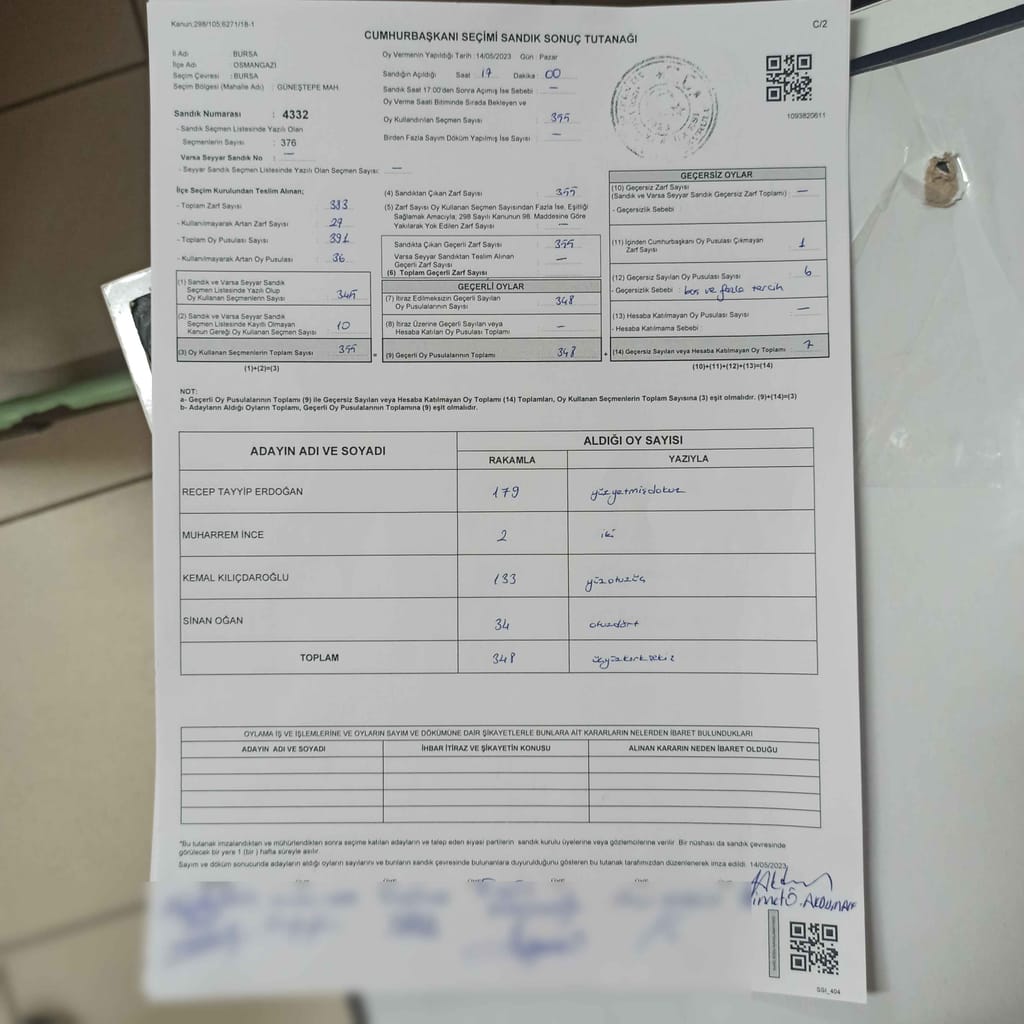 Kanun:298/105;6271/18-1
C/2
CUMHURBAŞKANI SEÇİMİ SANDIK SONUÇ TUTANAĞI
İl Adı : BURSA
İlçe Adı : OSMANGAZİ
Seçim Çevresi : BURSA
Seçim Bölgesi (Mahalle Adı) : GÜNEŞTEPE MAH.
Sandık Numarası : 4332
- Sandık Seçmen Listesinde Yazılı Olan
Seçmenlerin Sayısı : 376
Varsa Seyyar Sandık No : —
- Seyyar Sandık Seçmen Listesinde Yazılı Olan Seçmen Sayısı : —
Oy Vermenin Yapıldığı Tarih : 14/05/2023 Gün : Pazar
Sandığın Açıldığı Saat 17 Dakika 00
Sandık Saat 17:00'den Sonra Açımış İse Sebebi : —
Oy Verme Saati Bitiminde Sırada Bekleyen ve
Oy Kullandırılan Seçmen Sayısı : 355
Birden Fazla Sayım Döküm Yapılmış İse Sayısı : —
1093820611
İlçe Seçim Kurulundan Teslim Alınan;
- Toplam Zarf Sayısı : 383
- Kullanılmayarak Artan Zarf Sayısı : 29
- Toplam Oy Pusulası Sayısı : 391
- Kullanılmayarak Artan Oy Pusulası : 36
(1) Sandık ve Varsa Seyyar Sandık
Seçmen Listesinde Yazılı Olup
Oy Kullanan Seçmenlerin Sayısı : 345
(2) Sandık ve Varsa Seyyar Sandık
Seçmen Listesinde Kayıtlı Olmayan
Kanun Gereği Oy Kullanan Seçmen Sayısı : 10
(3) Oy Kullanan Seçmenlerin Toplam Sayısı : 355
(1)+(2)=(3)
(4) Sandıktan Çıkan Zarf Sayısı : 355
(5) Zarf Sayısı Oy Kullanan Seçmen Sayısından Fazla İse, Eşitliği
Sağlamak Amacıyla; 298 Sayılı Kanunun 98. Maddesine Göre
Yakılarak Yok Edilen Zarf Sayısı : —
Sandıkta Çıkan Geçerli Zarf Sayısı : 355
Varsa Seyyar Sandıktan Teslim Alınan
Geçerli Zarf Sayısı : —
(6) Toplam Geçerli Zarf Sayısı :
GEÇERLİ OYLAR
(7) İtiraz Edilmeksizin Geçerli Sayılan
Oy Pusulalarının Sayısı : 348
(8) İtiraz Üzerine Geçerli Sayılan veya
Hesaba Katılan Oy Pusulası Toplamı : —
(9) Geçerli Oy Pusulalarının Toplamı : 348
GEÇERSİZ OYLAR
(10) Geçersiz Zarf Sayısı
(Sandık ve Varsa Seyyar Sandık Geçersiz Zarf Toplamı) : —
- Geçersizlik Sebebi :
(11) İçinden Cumhurbaşkanı Oy Pusulası Çıkmayan
Zarf Sayısı : 1
(12) Geçersiz Sayılan Oy Pusulası Sayısı : 6
- Geçersizlik Sebebi : boş ve fazla tercih
(13) Hesaba Katılmayan Oy Pusulası Sayısı : —
- Hesaba Katılmama Sebebi :
(14) Geçersiz Sayılan veya Hesaba Katılmayan Oy Toplamı : 7
(10)+(11)+(12)+(13)=(14)
NOT:
a- Geçerli Oy Pusulalarının Toplamı (9) ile Geçersiz Sayılan veya Hesaba Katılmayan Oy Toplamı (14) Toplamları, Oy Kullanan Seçmenlerin Toplam Sayısına (3) eşit olmalıdır. (9)+(14)=(3)
b- Adayların Aldığı Oyların Toplamı, Geçerli Oy Pusulalarının Toplamına (9) eşit olmalıdır.
ADAYIN ADI VE SOYADI ALDIĞI OY SAYISI
RAKAMLA YAZIYLA
RECEP TAYYİP ERDOĞAN 179 yüzyetmişdokuz
MUHARREM İNCE 2 iki
KEMAL KILIÇDAROĞLU 133 yüzotuzüç
SİNAN OĞAN 34 otuzdört
TOPLAM 348 üçyüzkırksekiz
OYLAMA İŞ VE İŞLEMLERİNE VE OYLARIN SAYIM VE DÖKÜMÜNE DAİR ŞİKAYETLERLE BUNLARA AİT KARARLARIN NELERDEN İBARET BULUNDUKLARI
ADAYIN ADI VE SOYADI İHBAR İTİRAZ VE ŞİKAYETİN KONUSU ALINAN KARARIN NEDEN İBARET OLDUĞU
"Bu tutanak imzalandıktan ve mühürlendikten sonra seçime katılan adayların ve talep eden siyasi partilerin sandık kurulu üyelerine veya gözlemcilerine verilir. Bir nüshası da sandık çevresinde
görülecek bir yere 1 (bir ) hafta süreyle asılır.
Sayım ve döküm sonucunda adayların aldığı oyların sayılarını ve bunların sandık çevresinde bulunanlara duyurulduğunu gösteren bu tutanak tarafımızdan düzenlenerek imza edildi. 14/05/2023
SGI_404